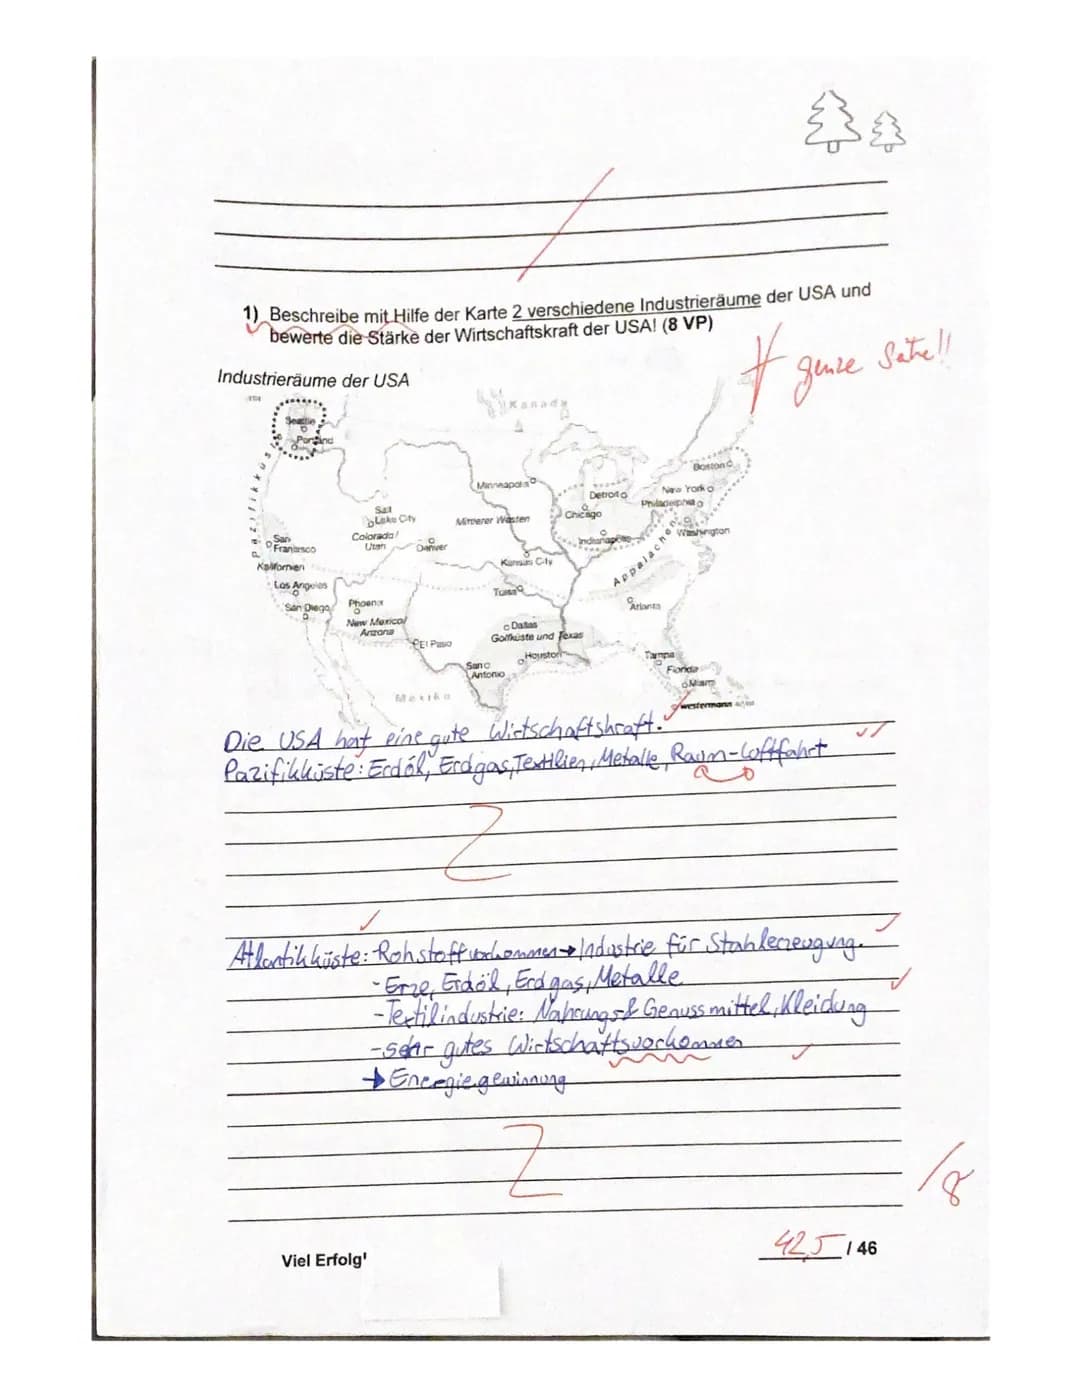 1) Beschreibe mit Hilfe der Karte 2 verschiedene Industrieräume der USA und
bewerte die Stärke der Wirtschaftskraft der USA! (8 VP)
ganze Sätze!!
Industrieräume der USA
Kanada
Seattle
Portland
Pazifikküste
Boston
Minneapolis
Detroit
New York
Philadelphia
Salt
Lake City
Mittlerer Westen
Chicago
Washington
San
Francisco
Colorado/
Utah
Denver
Indianapolis
Kalifornien
Kansas City
Appalachen
Los Angeles
Tulsa
San Diego
Phoenix
Atlanta
New Mexico/
Arizona
Dallas
Golfküste und Texas
El Paso
Houston
San
Antonio
Tampa
Florida
Miami
Mexiko
westermann
Die USA hat eine gute Wirtschaftskraft.
Pazifikküste: Erdöl, Erdgas, Textilien, Metalle, Raum-Loftfahrt
Atlantikküste: Rohstoffvorkommen → Industrie für Stahlerzeugung.
- Erze, Erdöl, Erdgas, Metalle
- Textilindustrie: Nahrungs & Genussmittel, Kleidung
- sehr gutes Wirtschaftsvorkommen
→ Energiegewinnung
/8
42,5 / 46
Viel Erfolg!